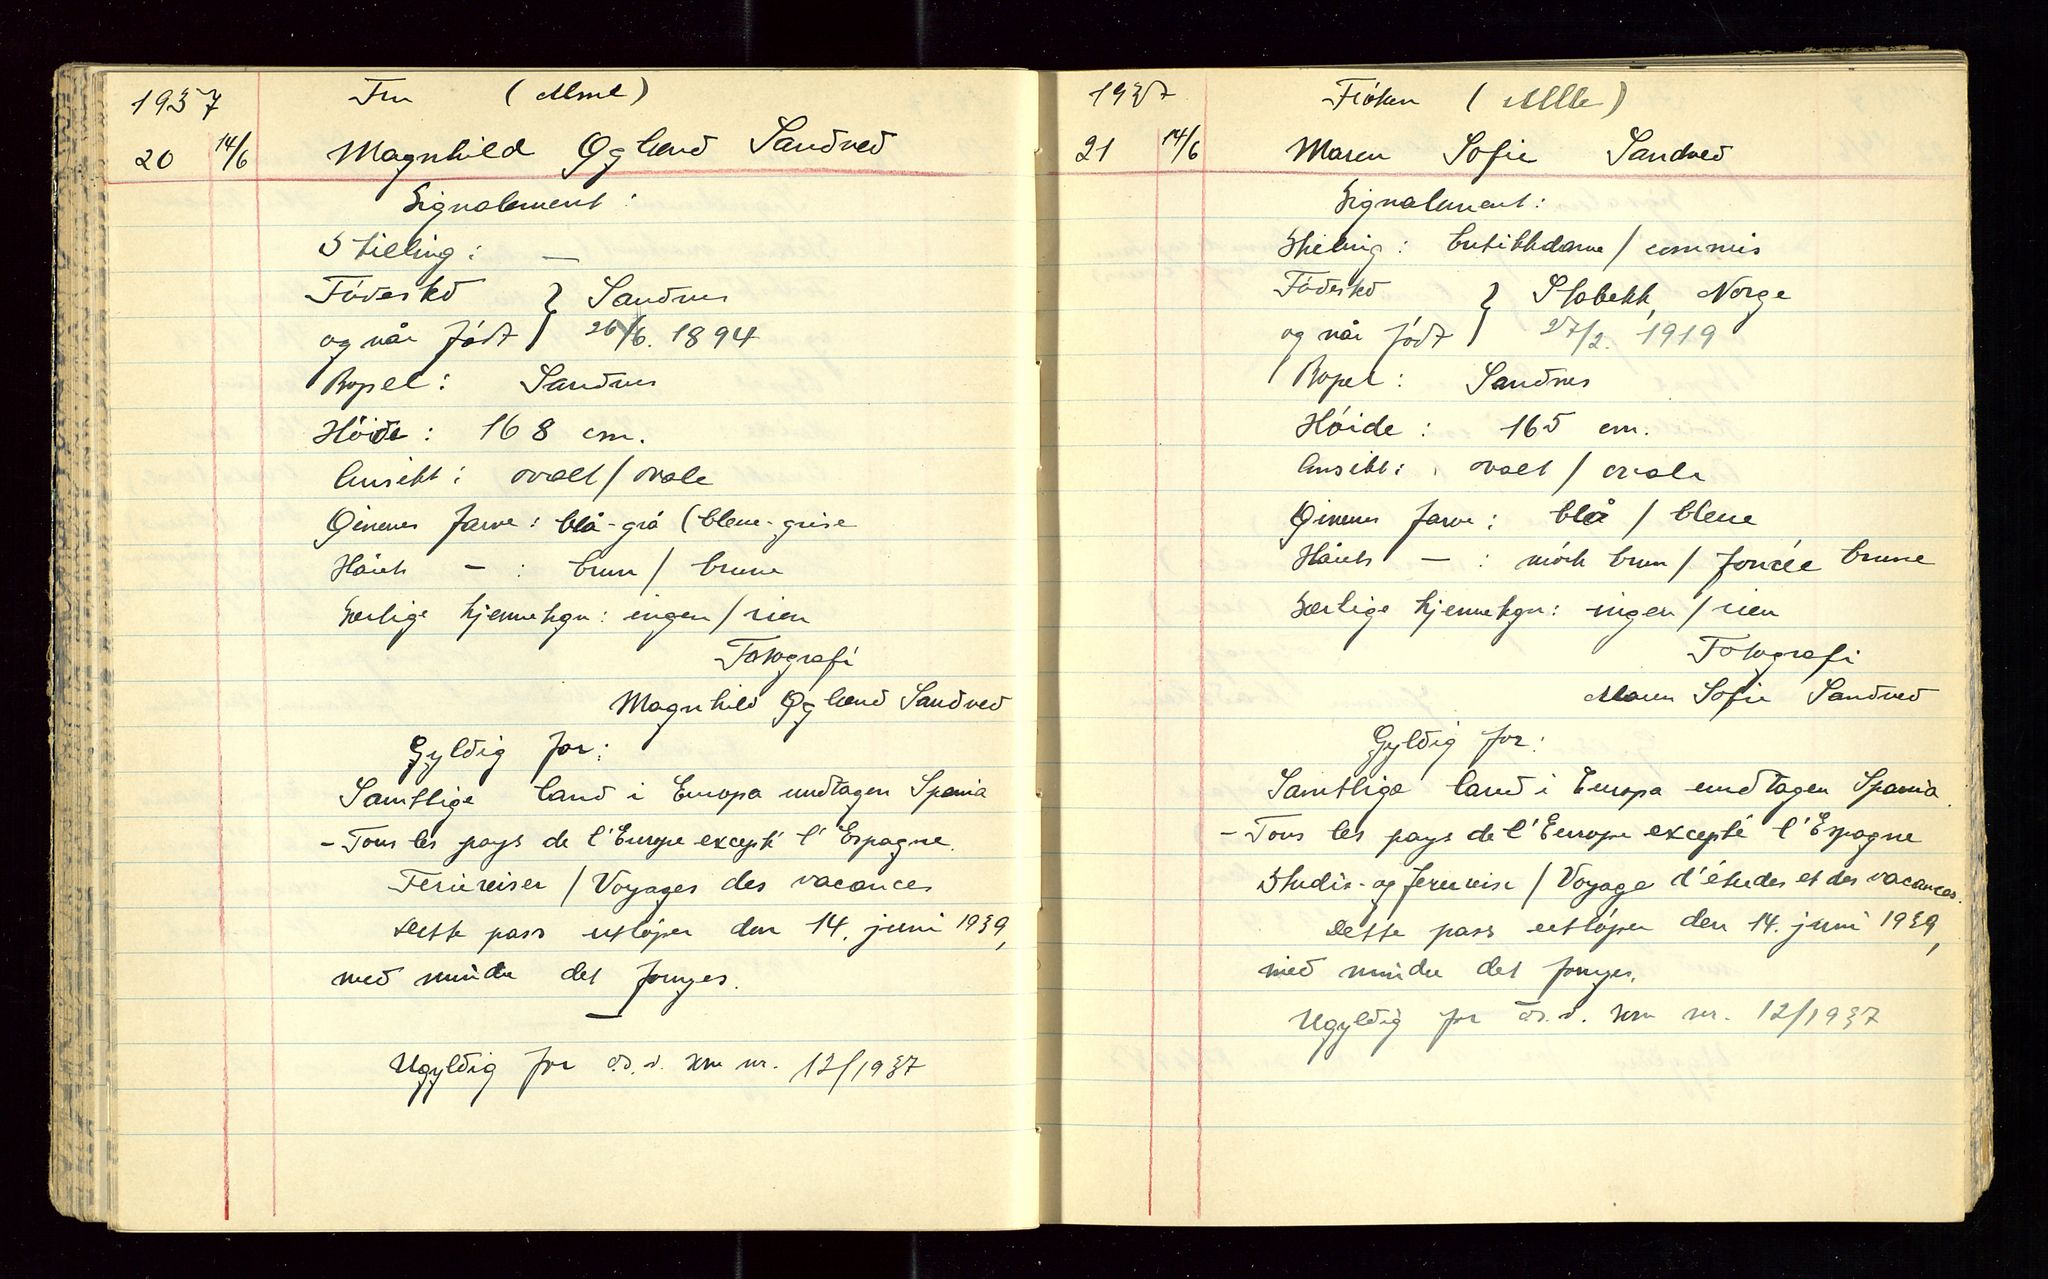 1937
Fru (Mme)
20 14/6 Magnhild Øglænd Sandved
Signalement:
Stilling: —
Fødested } Sandnes
og når født } 26/6. 1894
Bopel: Sandnes
Høide: 168 cm.
Ansikt: ovalt / ovale
Øinenes farve: blå-grå (bleue-grise
Hårets — : brun / brune
Særlige kjennetegn: ingen / rien
Fotografi
Magnhild Øglænd Sandved
Gyldig for:
Samtlige land i Europa undtagen Spania
- Tous les pays de l'Europe excepté l'Espagne.
Feriereiser / Voyages des vacances
Dette pass utløper den 14. juni 1939,
med mindre det fornyes.
—
Ugyldig for
nr. 12/1937
1937
Frøken (Mlle)
21 14/6 Maren Sofie Sandved
Signalement:
Stilling: butikkdame / commis
Fødested } Stabekk, Norge
og når født } 27/2. 1919
Bopel: Sandnes
Høide: 165 cm.
Ansikt: ovalt / ovale
Øinenes farve: blå / bleue
Hårets — : mörk brun / foncée brune
Særlige kjennetegn: ingen / rien
Fotografi
Maren Sofie Sandved
Gyldig for:
Samtlige land i Europa undtagen Spania.
- Tous les pays de l'Europe excepté l'Espagne
Studie- og feriereise / Voyage d'études et des vacances.
Dette pass utløper den 14. juni 1939,
med mindre det fornyes.
Ugyldig for
nr. 12/1937